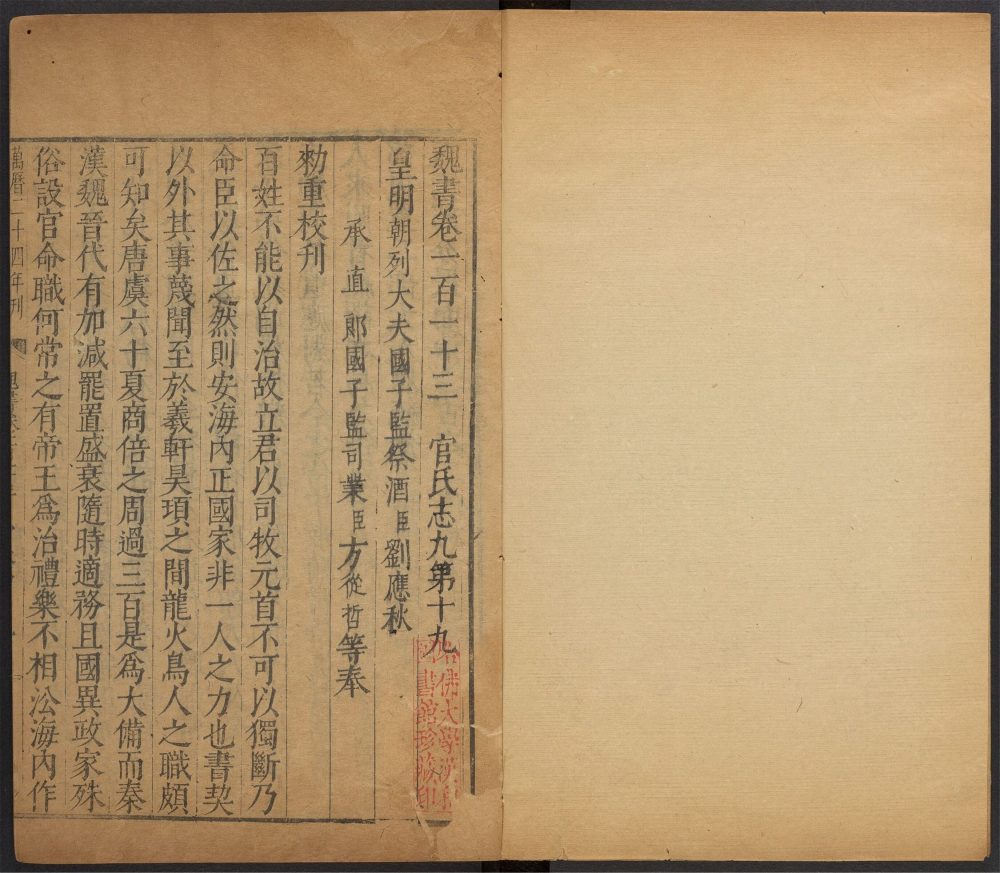 魏書卷一百一十三　官氏志九第十九
皇明朝列大夫國子監祭酒臣劉應秋
承直郞國子監司業臣方從哲等奉
勑重校刊
百姓不能以自治故立君以司牧元首不可以獨斷乃
命臣以佐之然則安海內正國家非一人之力也書契
以外其事蔑聞至於羲軒昊頊之間龍火鳥人之職頗
可知矣唐虞六十夏商倍之周過三百是爲大備而秦
漢魏晉代有加減罷置盛衰隨時適務且國異政家殊
俗設官命職何常之有帝王爲治禮樂不相沿海內作
萬曆二十四年刊
哈佛大學漢和
圖書館珍藏印